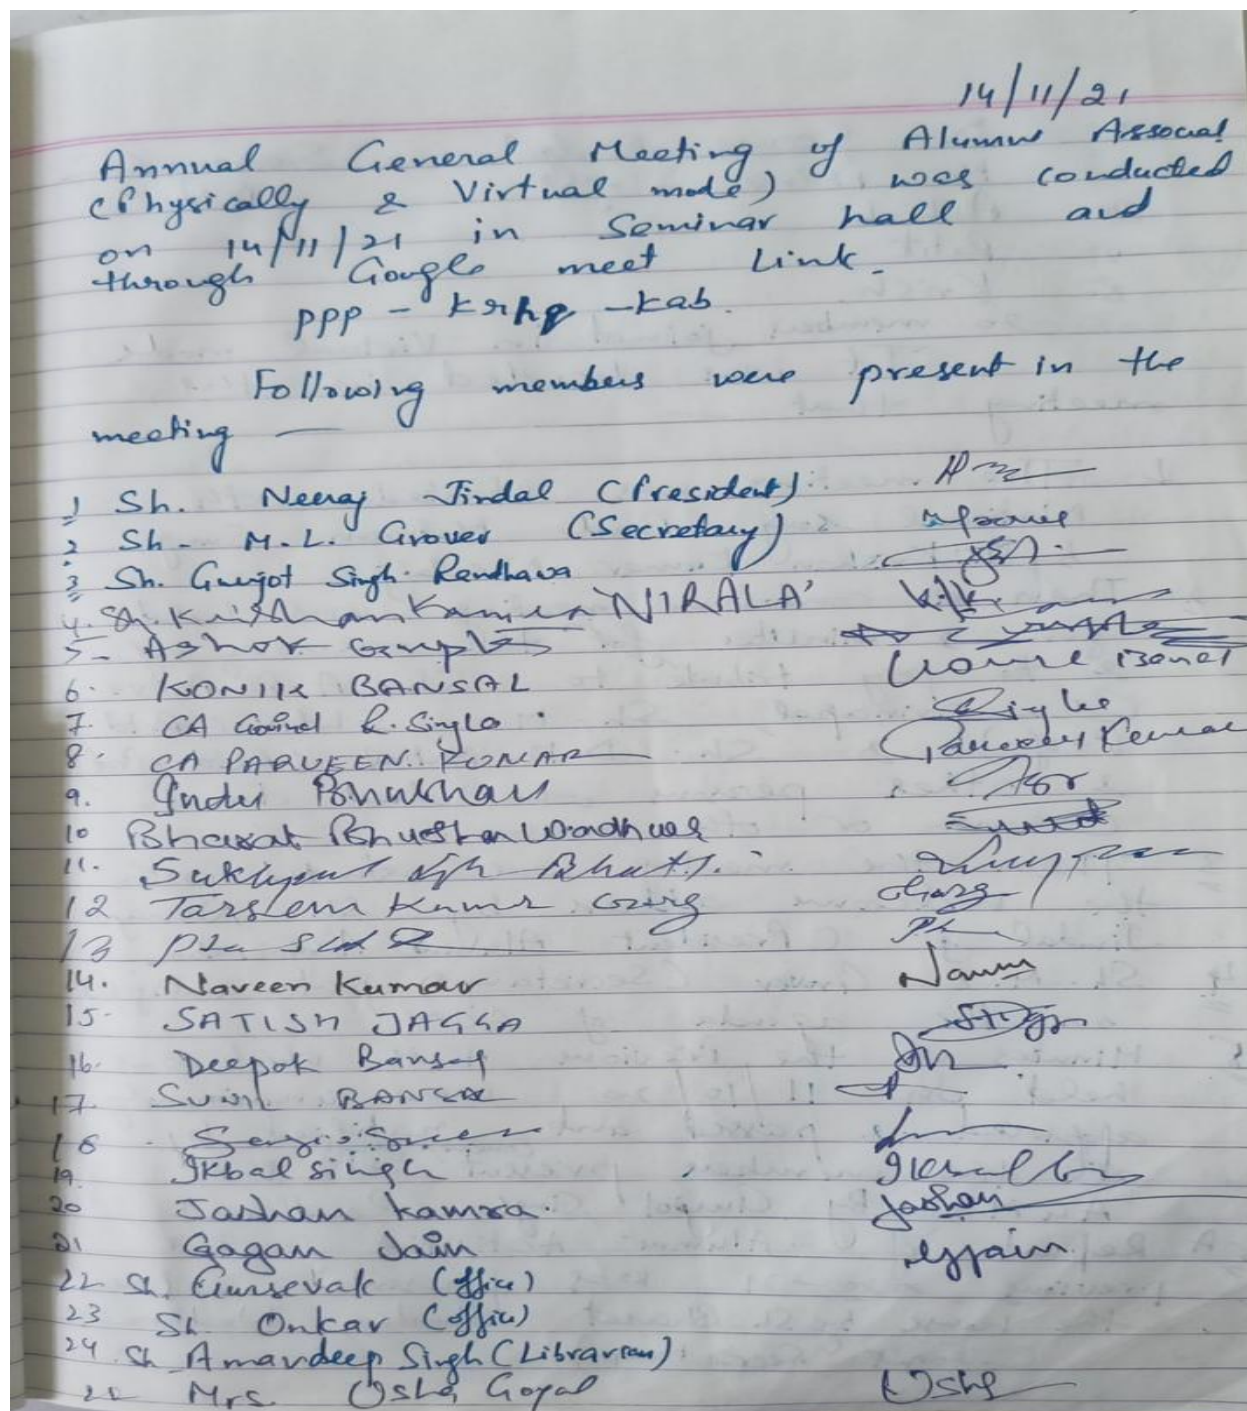 14/11/21
Annual General Meeting of Alumni Associat
(Physically & Virtual mode) was conducted
on 14/11/21 in Seminar hall and
through Google meet Link.
PPP - - kab.
Following members were present in the
meeting —
1 Sh. Neeraj Jindal (President)
2 Sh - M.L. Grover (Secretary)
3 Sh. Gurjot Singh Randhawa
4. Sh. Krishan Kumar 'NIRALA'
5- Ashok Gupta
6. KONIK BANSAL Konik Bansal
7. CA Govind R. Singla Singla
8. CA PARVEEN KUMAR Parveen Kumar
9. Indu
10 Bharat Bhushan Wadhwa
11. Singh Bhatti
12 Tarsem Kumar Garg Garg
13
14. Naveen Kumar Naveen
15. SATISH JAGGA
16. Deepak Bansal
17. SUNIL BANSAL
18
19. Ikbal Singh Ikbal
20 Jashan Kamra. Jashan
21 Gagan Jain Jain
22 Sh. Gursevak (Office)
23 Sh. Onkar (Office)
24 Sh Amardeep Singh (Librarian)
25 Mrs. Usha Goyal Usha